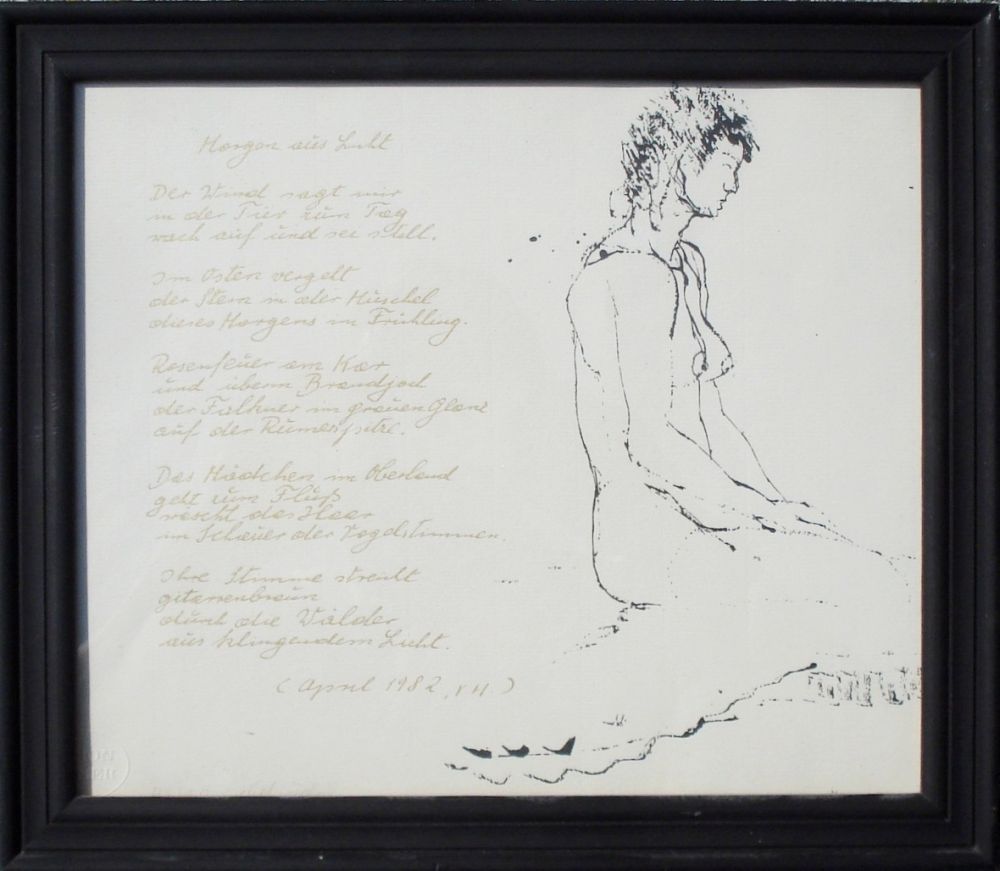 Morgen aus Licht
Der Wind sagt mir
in der Tier zum Tag
wach auf und sei still.
Im Osten vergelt
der Stern in der Muschel
dieses Morgens im Frühling.
Rosenfeuer am Kar
und überm Brandjoch
der Falkner im grauen Glanz
auf der Rumerspitze.
Das Mädchen im Oberland
geht zum Fluß
wäscht das Haar
im Scheuer der Vogelstimmen
Ihre Stimme streicht
gitarrenbraun
durch die Wälder
aus klingendem Licht.
(April 1982,